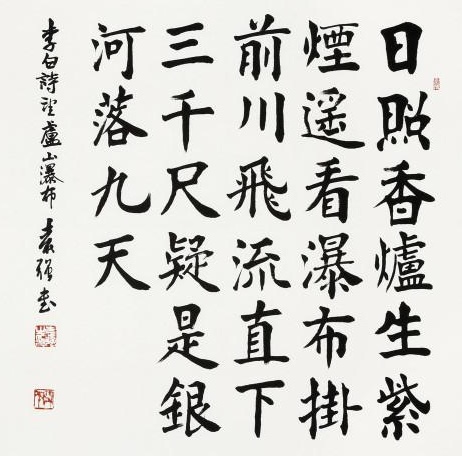 日照香爐生紫
煙遥看瀑布掛
前川飛流直下
三千尺疑是銀
河落九天
李白詩望盧山瀑布 袁强书